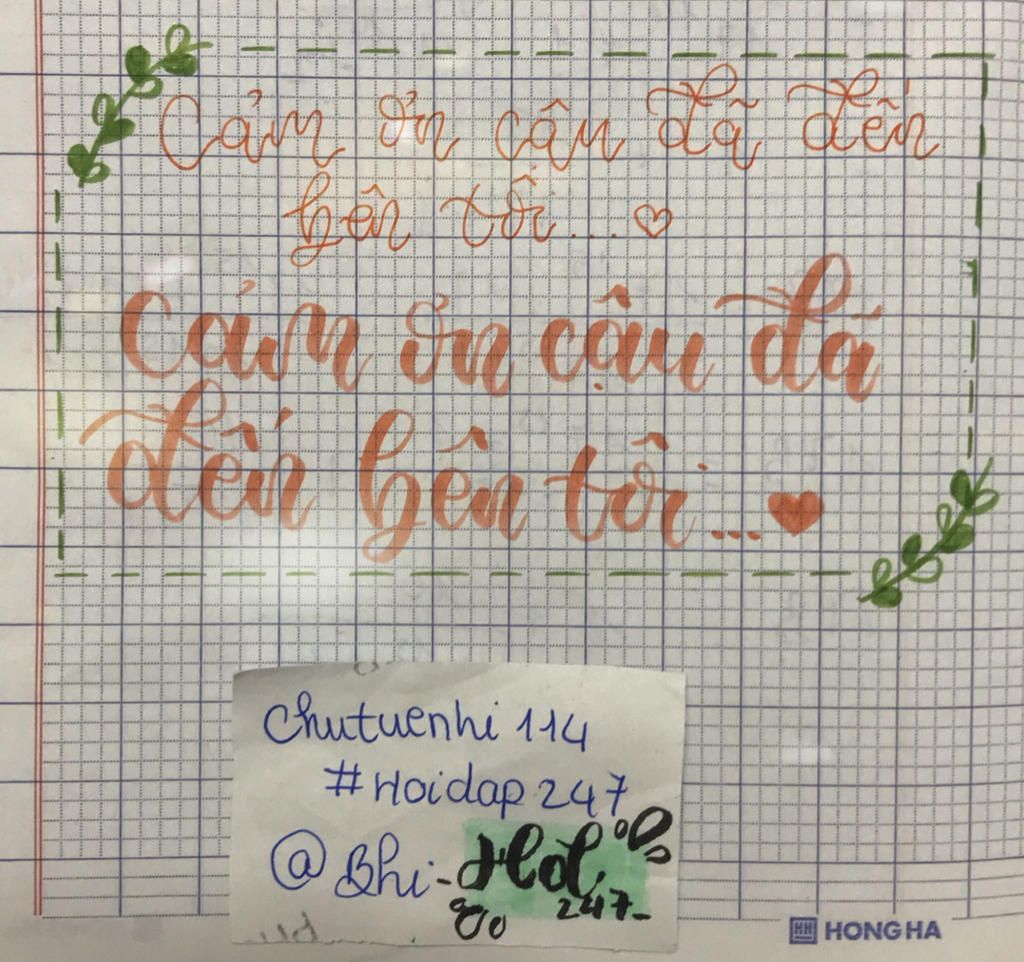 Cảm ơn cậu đã đến
bên tôi...
Cảm ơn cậu đã
đến bên tôi...
Chutuenhi 114
#Hoidap 247
@Bhi-
247-
HONG HA